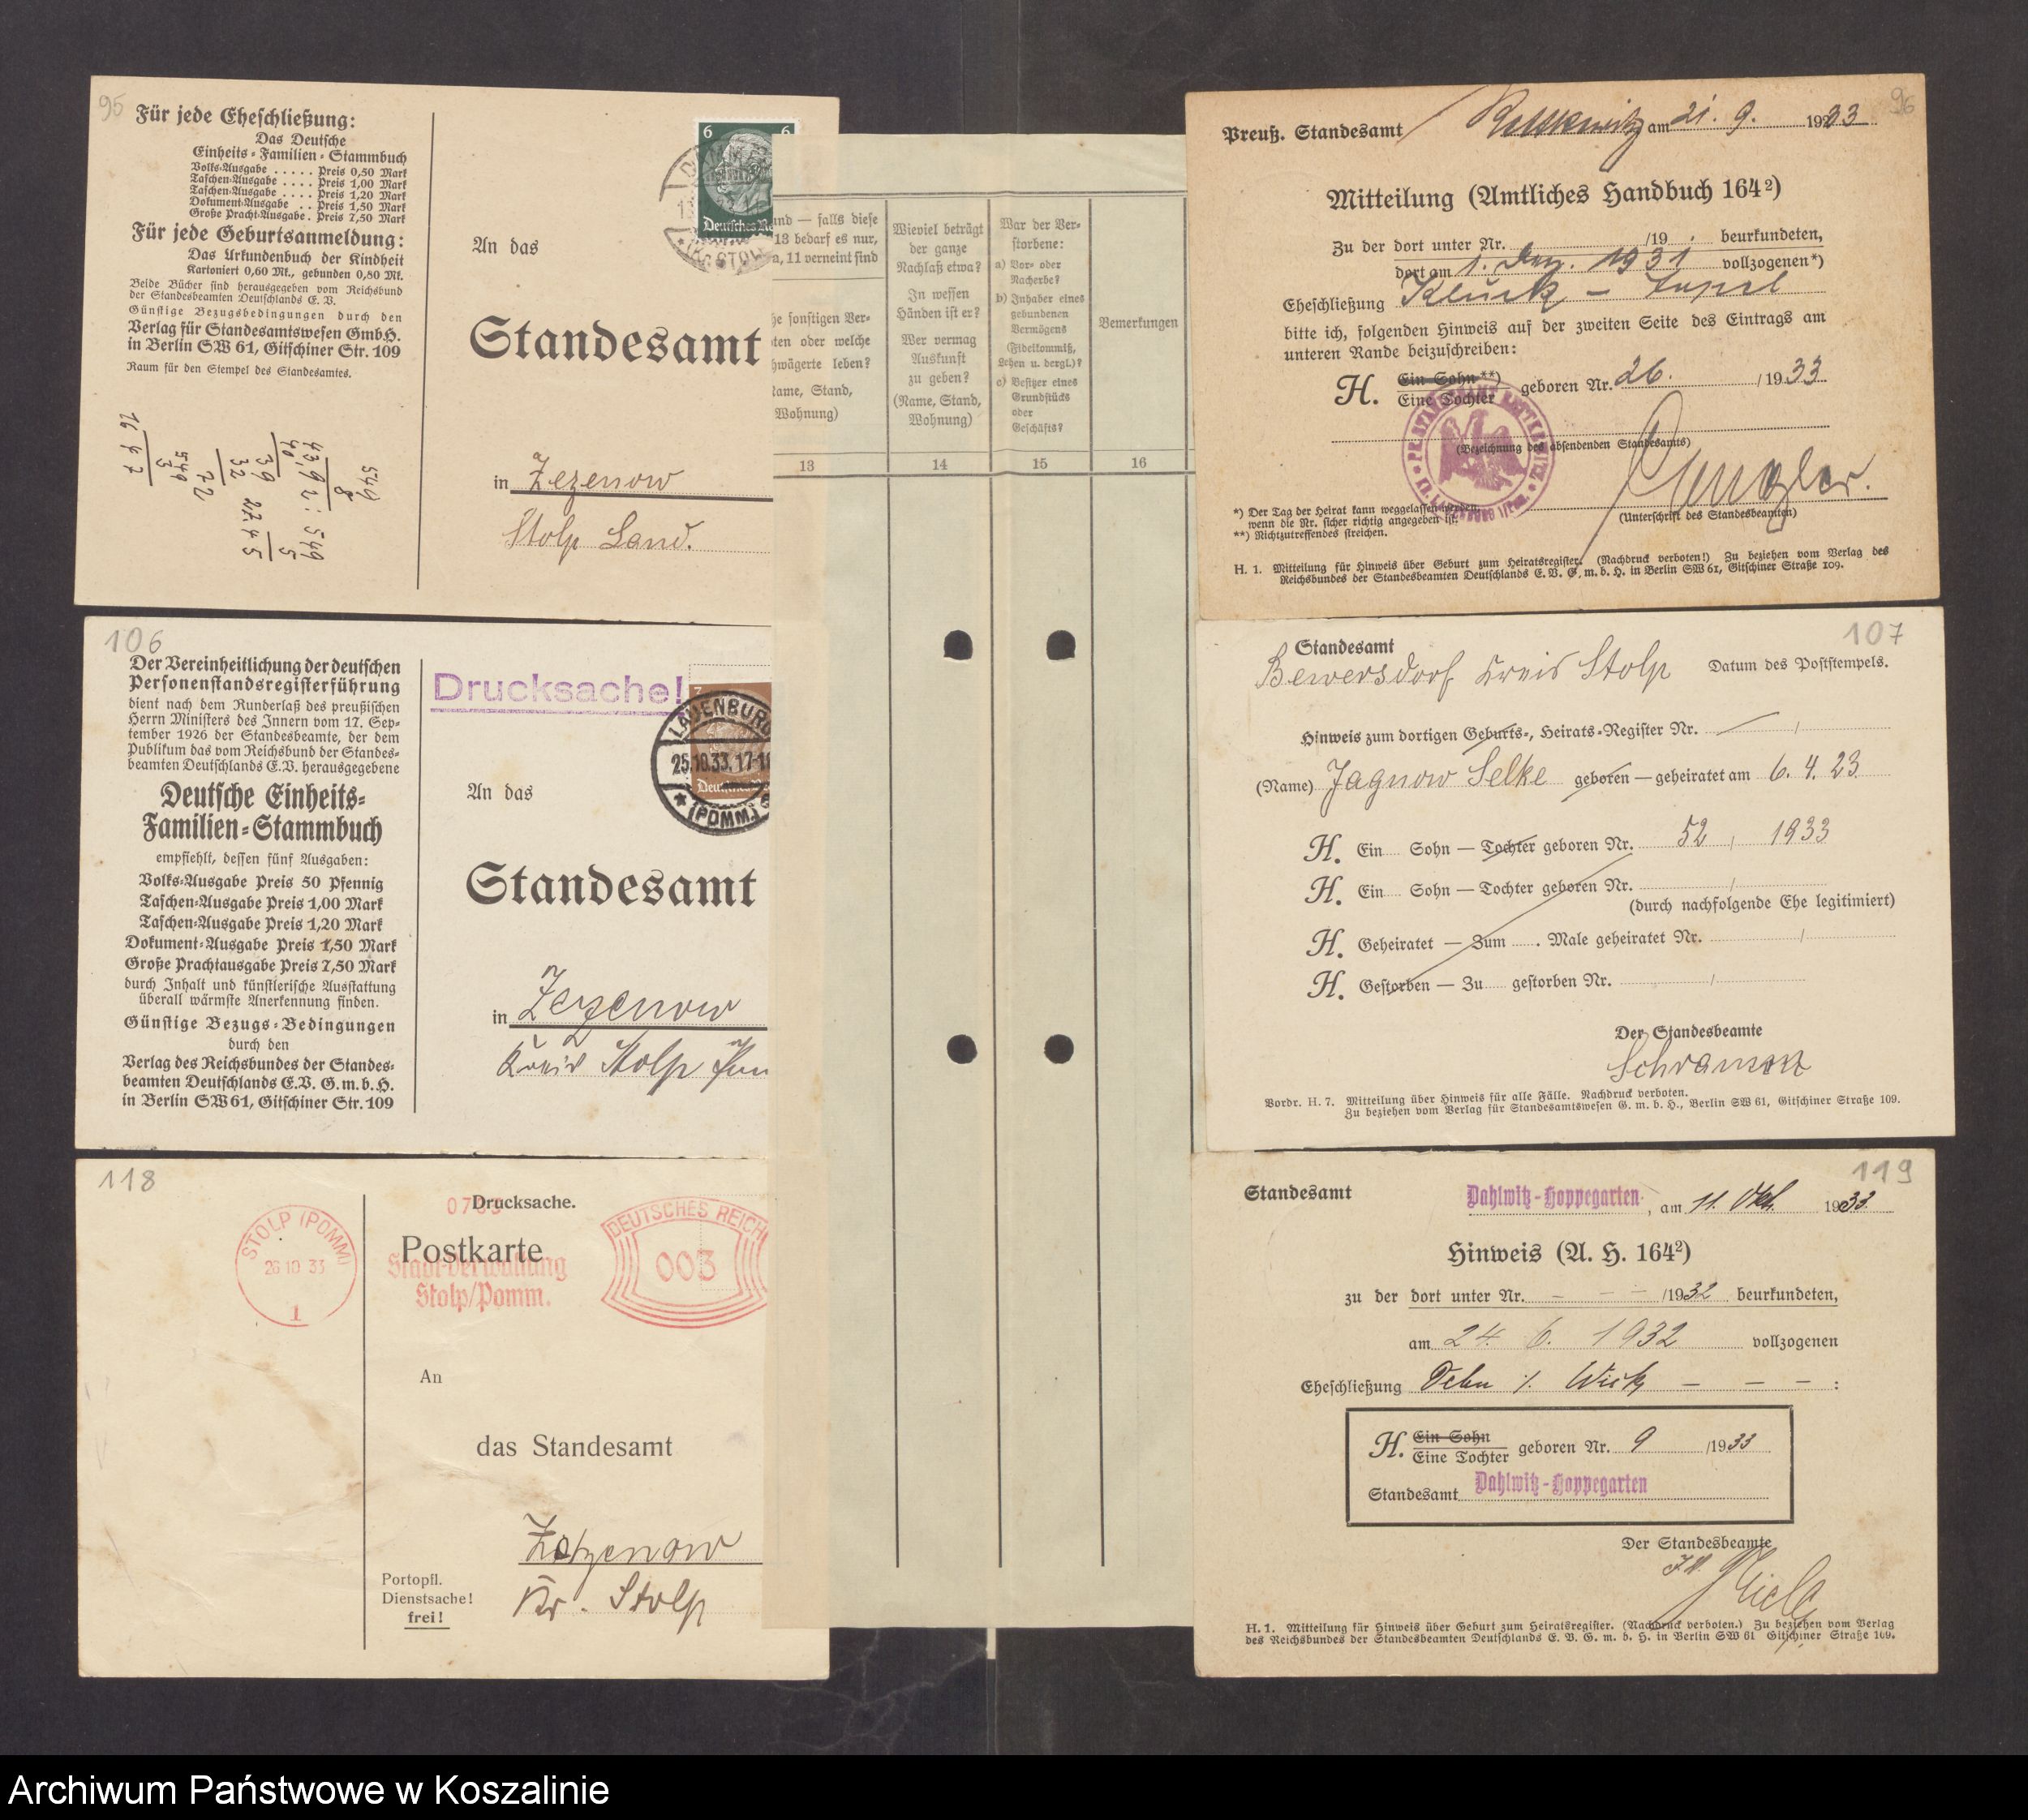 95
Für jede Eheschließung:
Das Deutsche
Einheits-Familien-Stammbuch
Volks-Ausgabe . . . . . Preis 0,50 Mark
Taschen-Ausgabe . . . . Preis 1,00 Mark
Taschen-Ausgabe . . . . Preis 1,20 Mark
Dokument-Ausgabe . . Preis 1,50 Mark
Große Pracht-Ausgabe . Preis 7,50 Mark
Für jede Geburtsanmeldung:
Das Urkundenbuch der Kindheit
Kartoniert 0,60 Mk., gebunden 0,80 Mk.
Beide Bücher sind herausgegeben vom Reichsbund
der Standesbeamten Deutschlands E. V.
Günstige Bezugsbedingungen durch den
Verlag für Standesamtswesen GmbH.
in Berlin SW 61, Gitschiner Str. 109
Raum für den Stempel des Standesamtes.
6 6
Deutsches Re
An das
Standesamt
in Zezenow
Stolp Land.
106
Der Vereinheitlichung der deutschen
Personenstandsregisterführung
dient nach dem Runderlaß des preußischen
Herrn Ministers des Innern vom 17. Sep-
tember 1926 der Standesbeamte, der dem
Publikum das vom Reichsbund der Standes-
beamten Deutschlands E.V. herausgegebene
Deutsche Einheits-
Familien-Stammbuch
empfiehlt, dessen fünf Ausgaben:
Volks-Ausgabe Preis 50 Pfennig
Taschen-Ausgabe Preis 1,00 Mark
Taschen-Ausgabe Preis 1,20 Mark
Dokument-Ausgabe Preis 1,50 Mark
Große Prachtausgabe Preis 7,50 Mark
durch Inhalt und künstlerische Ausstattung
überall wärmste Anerkennung finden.
Günstige Bezugs-Bedingungen
durch den
Verlag des Reichsbundes der Standes-
beamten Deutschlands E.V. G.m.b.H.
in Berlin SW61, Gitschiner Str. 109
Drucksache!
LAUENBURG
25.10.33. 17-18
(POMM.)
An das
Standesamt
in Zezenow
Kreis Stolp
118
STOLP (POMM)
26 10 33
1
Drucksache.
Postkarte
Stadtverwaltung
Stolp/Pomm.
DEUTSCHES REICH
003
An
das Standesamt
Zezenow
Kr. Stolp
Portopfl.
Dienstsache!
frei!
und — falls diese
13 bedarf es nur,
a, 11 verneint sind
he sonstigen Ver-
ten oder welche
hwägerte leben?
Name, Stand,
Wohnung)
13
Wieviel beträgt
der ganze
Nachlaß etwa?
In wessen
Händen ist er?
Wer vermag
Auskunft
zu geben?
(Name, Stand,
Wohnung)
14
War der Ver-
storbene:
a) Vor- oder
Nacherbe?
b) Inhaber eines
gebundenen
Vermögens
(Fideikommiß,
Lehen u. dergl.)?
c) Besitzer eines
Grundstücks
oder
Geschäfts?
15
Bemerkungen
16
96
Preuß. Standesamt am 21. 9. 1933
Mitteilung (Amtliches Handbuch 164²)
Zu der dort unter Nr. /19 . beurkundeten,
dort am 1. Dez. 1931 vollzogenen*)
Eheschließung
bitte ich, folgenden Hinweis auf der zweiten Seite des Eintrags am
unteren Rande beizuschreiben:
H. Ein Sohn**)
Eine Tochter geboren Nr. 26. /1933
(Bezeichnung des absendenden Standesamts)
(Unterschrift des Standesbeamten)
*) Der Tag der Heirat kann weggelassen werden,
wenn die Nr. sicher richtig angegeben ist.
**) Nichtzutreffendes streichen.
H. 1. Mitteilung für Hinweis über Geburt zum Heiratsregister. (Nachdruck verboten!) Zu beziehen vom Verlag des
Reichsbundes der Standesbeamten Deutschlands E. V. G. m. b. H. in Berlin SW 61, Gitschiner Straße 109.
107
Standesamt
Bewersdorf Kreis Stolp Datum des Poststempels.
Hinweis zum dortigen Geburts-, Heirats-Register Nr. /
(Name) Jagnow Selke geboren — geheiratet am 6. 4. 23
H. Ein Sohn — Tochter geboren Nr. 52, 1933
H. Ein Sohn — Tochter geboren Nr. /
(durch nachfolgende Ehe legitimiert)
H. Geheiratet — Zum . Male geheiratet Nr. /
H. Gestorben — Zu gestorben Nr. /
Der Standesbeamte
Schramm
Vordr. H. 7. Mitteilung über Hinweis für alle Fälle. Nachdruck verboten.
Zu beziehen vom Verlag für Standesamtswesen G. m. b. H., Berlin SW 61, Gitschiner Straße 109.
119
Standesamt Dahlwitz-Hoppegarten, am 11. Okt. 1933
Hinweis (A. H. 164²)
zu der dort unter Nr. – – – /1932 beurkundeten,
am 24. 6. 1932 vollzogenen
Eheschließung – – – :
H. Ein Sohn
Eine Tochter geboren Nr. 9 /1933
Standesamt Dahlwitz-Hoppegarten
Der Standesbeamte
H. 1. Mitteilung für Hinweis über Geburt zum Heiratsregister. (Nachdruck verboten.) Zu beziehen vom Verlag
des Reichsbundes der Standesbeamten Deutschlands E. V. G. m. b. H. in Berlin SW 61 Gitschiner Straße 109.
Archiwum Państwowe w Koszalinie